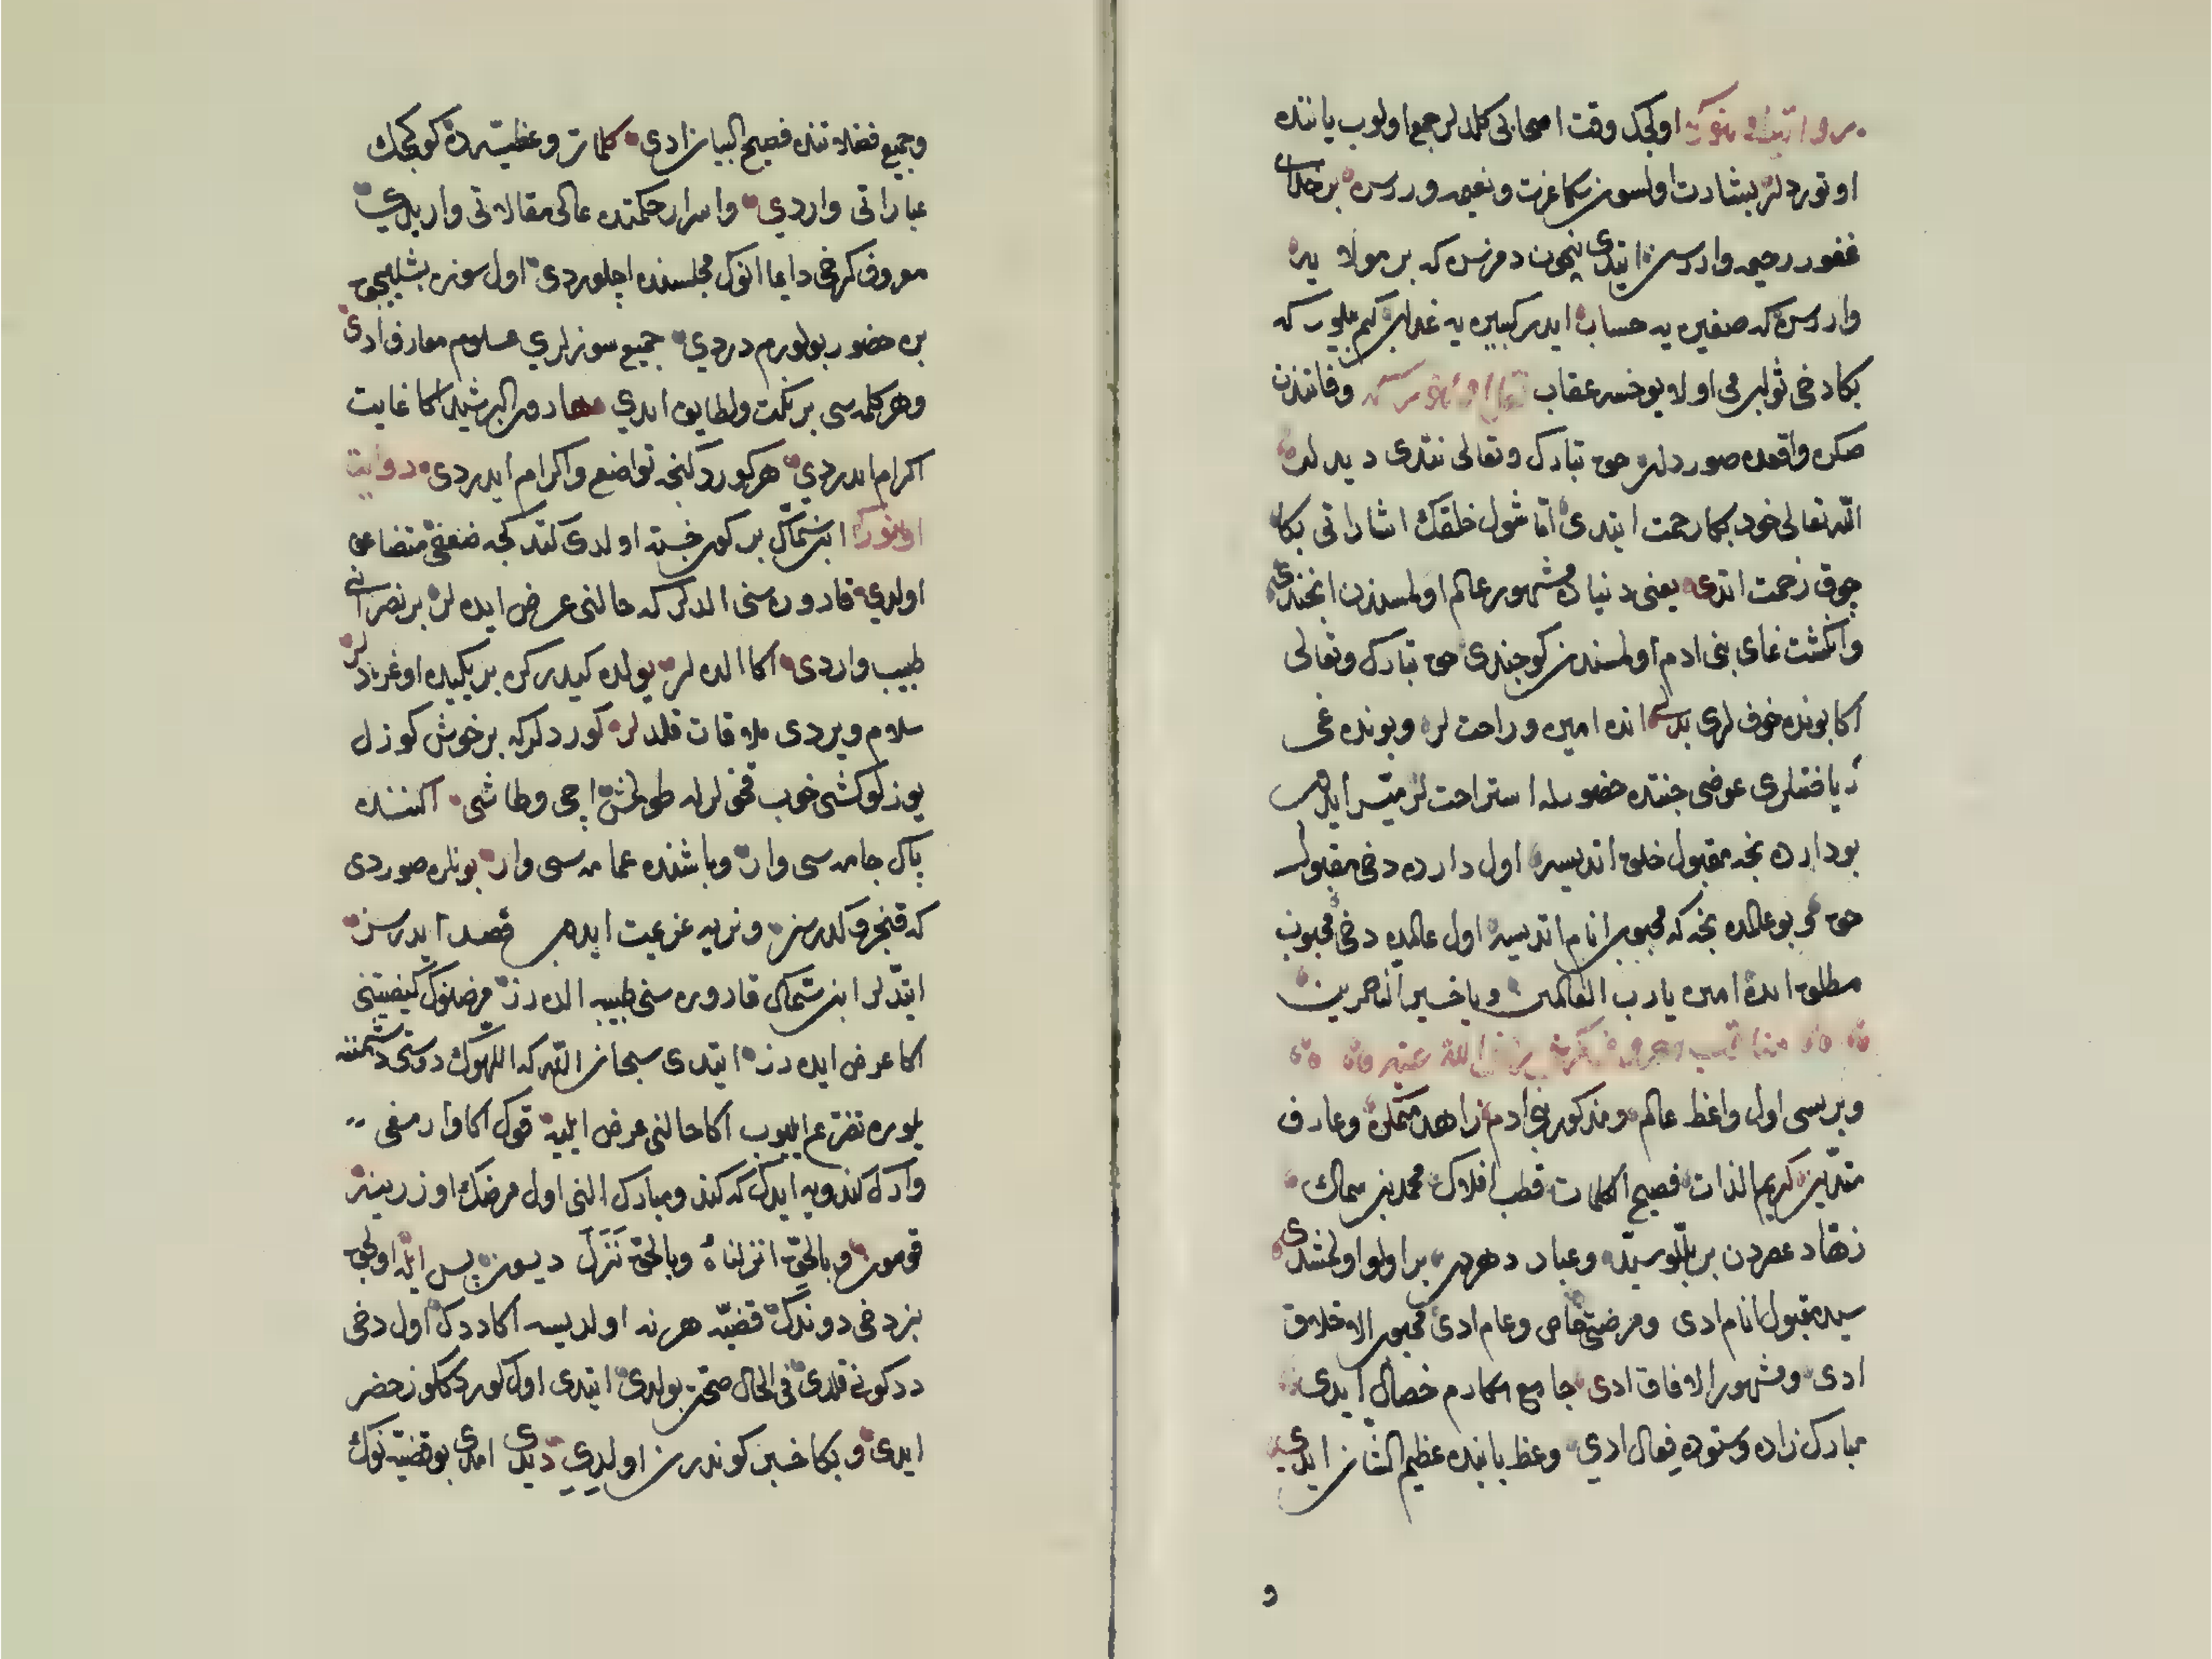 اولیجک وقت اصحابی کلدلر جمع اولوب یاننده
اوتوردلر بشارت اولسون سکا عزت و نعیمه وررسن بر خدای
غفور رحیمه واررسن ایتدی نیچون دمزسن که بر مولا یه
واررسن که صغیره یه حساب ایدر کبیره یه عذاب کم بیلور که
بکا دخی ثوابمی اولا یوخسه عقاب وفاتندن
صکره واقعده صوردلر حق تبارک وتعالی نتدی دیدلر
الله تعالی خود بکا رحمت ایتدی اما شول خلقک اشاراتی بکا
چوق زحمت اتدی یعنی دنیاده مشهور عالم اولمسندن انجندی
وانکشت نمای بنی ادم اولمسندن کوجندی حق تبارک وتعالی
اکا بونده خوفلری بدلی انده امین و راحتلر و بونده غی
ریاضتلری عوضی جنتده حضورله استراحتلر میسر ایلدی
بو دارده نجه مقبول خلق اتدیسه اول دارده دخی مقبول
حق و بو عالمده نجه که محبوب انام اتدیسه اول عالمده دخی محبوب
مطلق ایده امین یا رب العالمین ویا خیر الناصرین
مناقب معروف کرخی رضی الله عنه
وبریسی اول واعظ عالم ومذکور بنی ادم زاهد متمکن وعارف
متدین کریم الذات فصیح الکلمات قطب افلاک محمد بن سماک
زهاد عصردن بر بللو سیدی وعباد دهردن بر اولو اولمشدی
سیدی مقبول انام ادی ومرضی خاص وعام ادی محبوب الاخلاق
ادی ومشهور الافاق ادی جامع مکارم خصال ایدی
مبارک زاده وستوده فعال ادی وعظ بابنده عظیم الشان ایدی
و
وجمیع فضلاتنده فصیح البیان ادی کلمات وعظیه ده کوکجک
عباراتی واردی واسرار حکمتده عالی مقالاتی واریدی
معروف کرخی دایما انوک مجلسنده اچلوردی اول سوزه بشلیجق
بن حضور بولورم دردی جمیع سوزلری علوم معارف ادی
وهر کلمه سی بر نکت ولطایف ایدی هارون الرشید اکا غایت
اکرام ایدردی هر کوردکنجه تواضع واکرام ایدردی روایت
اولنور که ابن سماک بر کون خسته اولدی کتدکجه ضعفی متضاعف
اولدی قاروره سنی الدلر که حالنی عرض ایده لر بر نصرانی
طبیب واردی اکا الده لر یولده کیدرکن بر یکیده اوغردلر
سلام ویردی ملاقات قلدلر کوردلر که بر خوش کوزل
یوزلو کشی خوب قخولرله طولمش اچی وطاشی اکننده
پاک جامه سی وار وباشنده عمامه سی وار بونلره صوردی
که قنجرو کلدرسز ونریه عزیمت ایدوب قصد ایدرسز
ایتدلر ابن سماک قاروره سنی طبیبه الدرز مرضنوک کیفیتنی
اکا عرض ایده رز ایتدی سبحان الله که اللهوک دوستی دشمننه
یلوره تضرع ایلیوب اکا حالنی عرض ایلیه قوک اکا وارمغی
وارک کندویه ایدک که کندو مبارک النی اول مرضک اوزرینه
قوسون وبالحق انزلناه وبالحق نزل دیسون پس ایله اولیجق
بز دخی دوندک قضیه هر نه اولدیسه اکا ددک اول دخی
ددکونی قلدی فی الحال صحت بولدی ایتدی اول کوردککوز خضر
ایدی و بکا خبر کوندرن اولدی دیدی امدی بو قضیه نوک